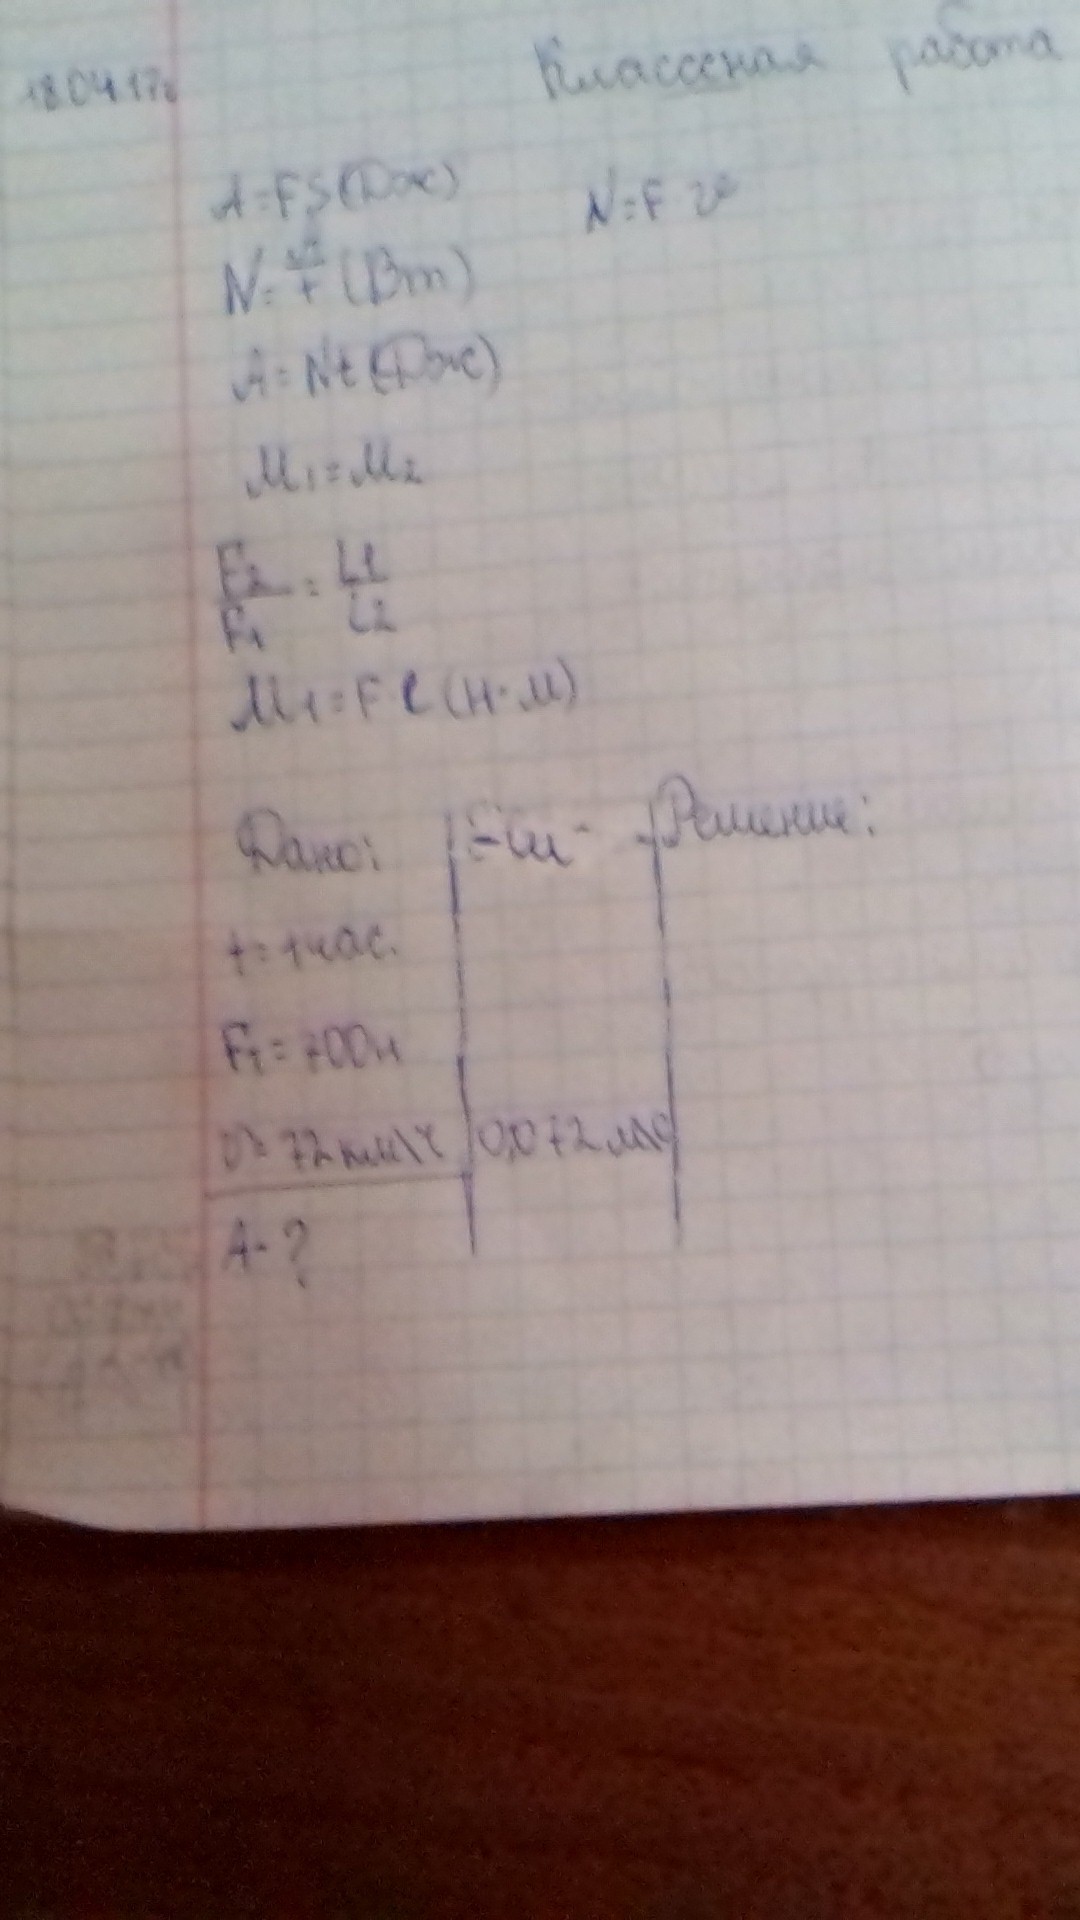 18.04.17г Классеная работа
A=FS(Дж) N=Fv
N=A/t (Вт)
A=Nt(Дж)
M1=M2
F2/F1 = L1/L2
M1=Fℓ(Н·м)
Дано: Си Решение:
t=1час.
F1=700н
v=72км\ч 0,072м\с
A-?